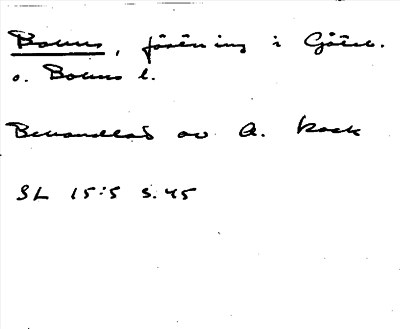 Bohus, försening i Göteb.
o. Bohus l.
Behandlad av A. Kock
SL 15:5 s. 45